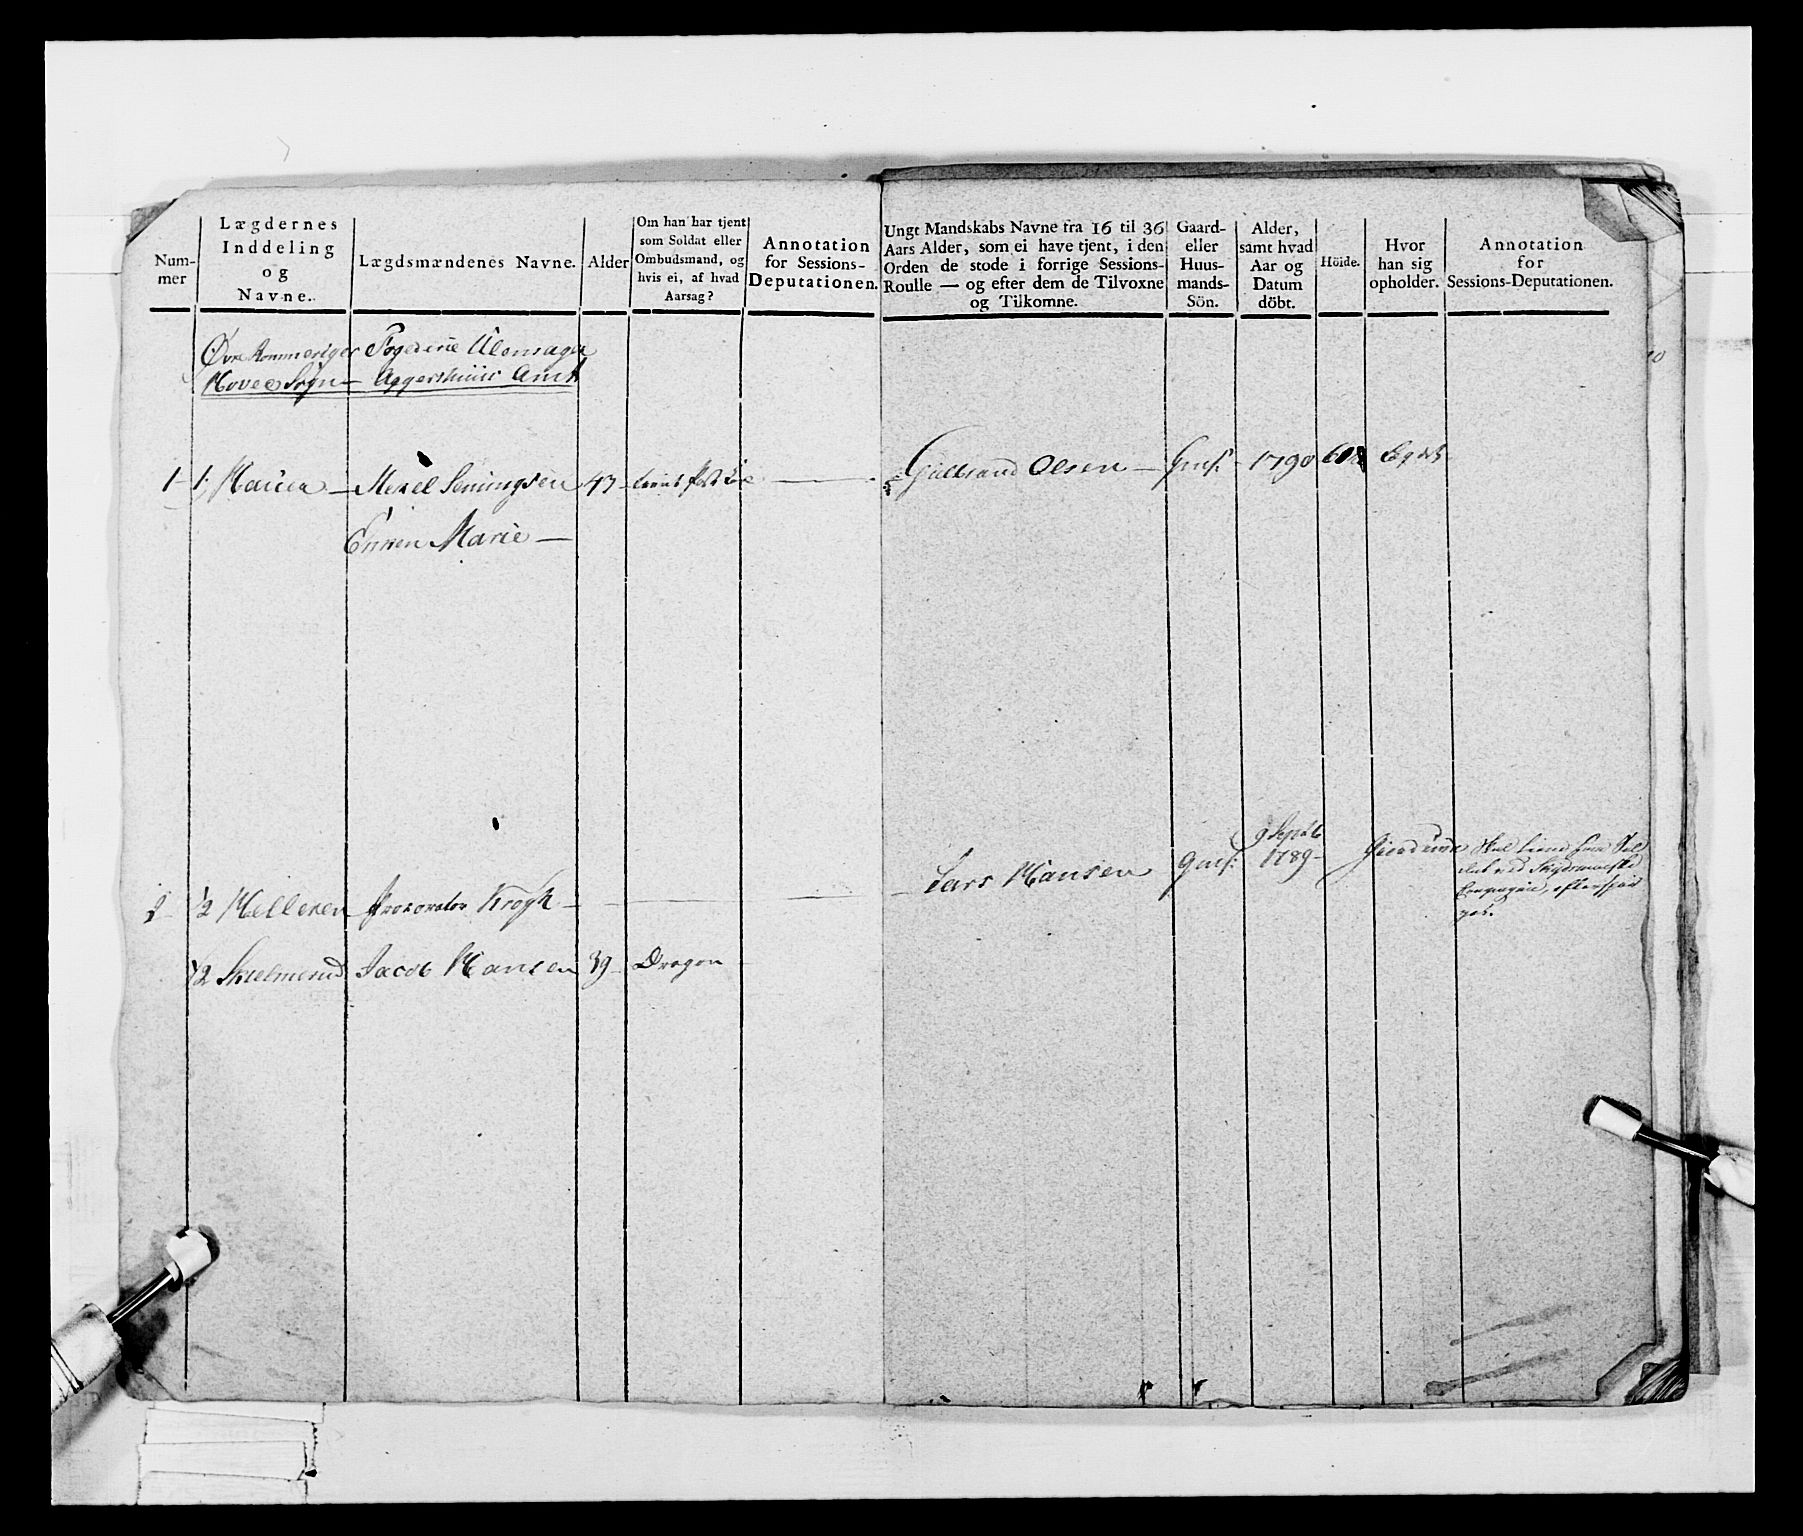 Num-
mer
Lægdernes
Inddeling
og
Navne.
Lægdsmændenes Navne.
Alder
Om han har tjent
som Soldat eller
Ombudsmand, og
hvis ei, af hvad
Aarsag?
Annotation
for Sessions-
Deputationen.
Ungt Mandskabs Navne fra 16 til 36
Aars Alder, som ei have tjent, i den
Orden de stode i forrige Sessions-
Roulle — og efter dem de Tilvoxne
og Tilkomne.
Gaard-
eller
Huus-
mands-
Sön.
Alder,
samt hvad
Aar og
Datum
döbt.
Höide.
Hvor
han sig
opholder.
Annotation
for
Sessions-Deputationen.
Øvre Rommeriger Fogderie Ulensager
Hoved Sogn — Aggershuus Amt
1 — 1/1 Hauer — Mekel Simingsen 47 —
Gulbrand Olsen — Gms: — 1790
Enken Marie —
9 Septb
Lars Hansen gms: 1789 —
Skal tiene som Sol
dat ved
Compagnie,
2 — 1/2 Helleren Procurator Krogh —
1/2 Skielmerud Jacob Hansen 39 — Dragon —